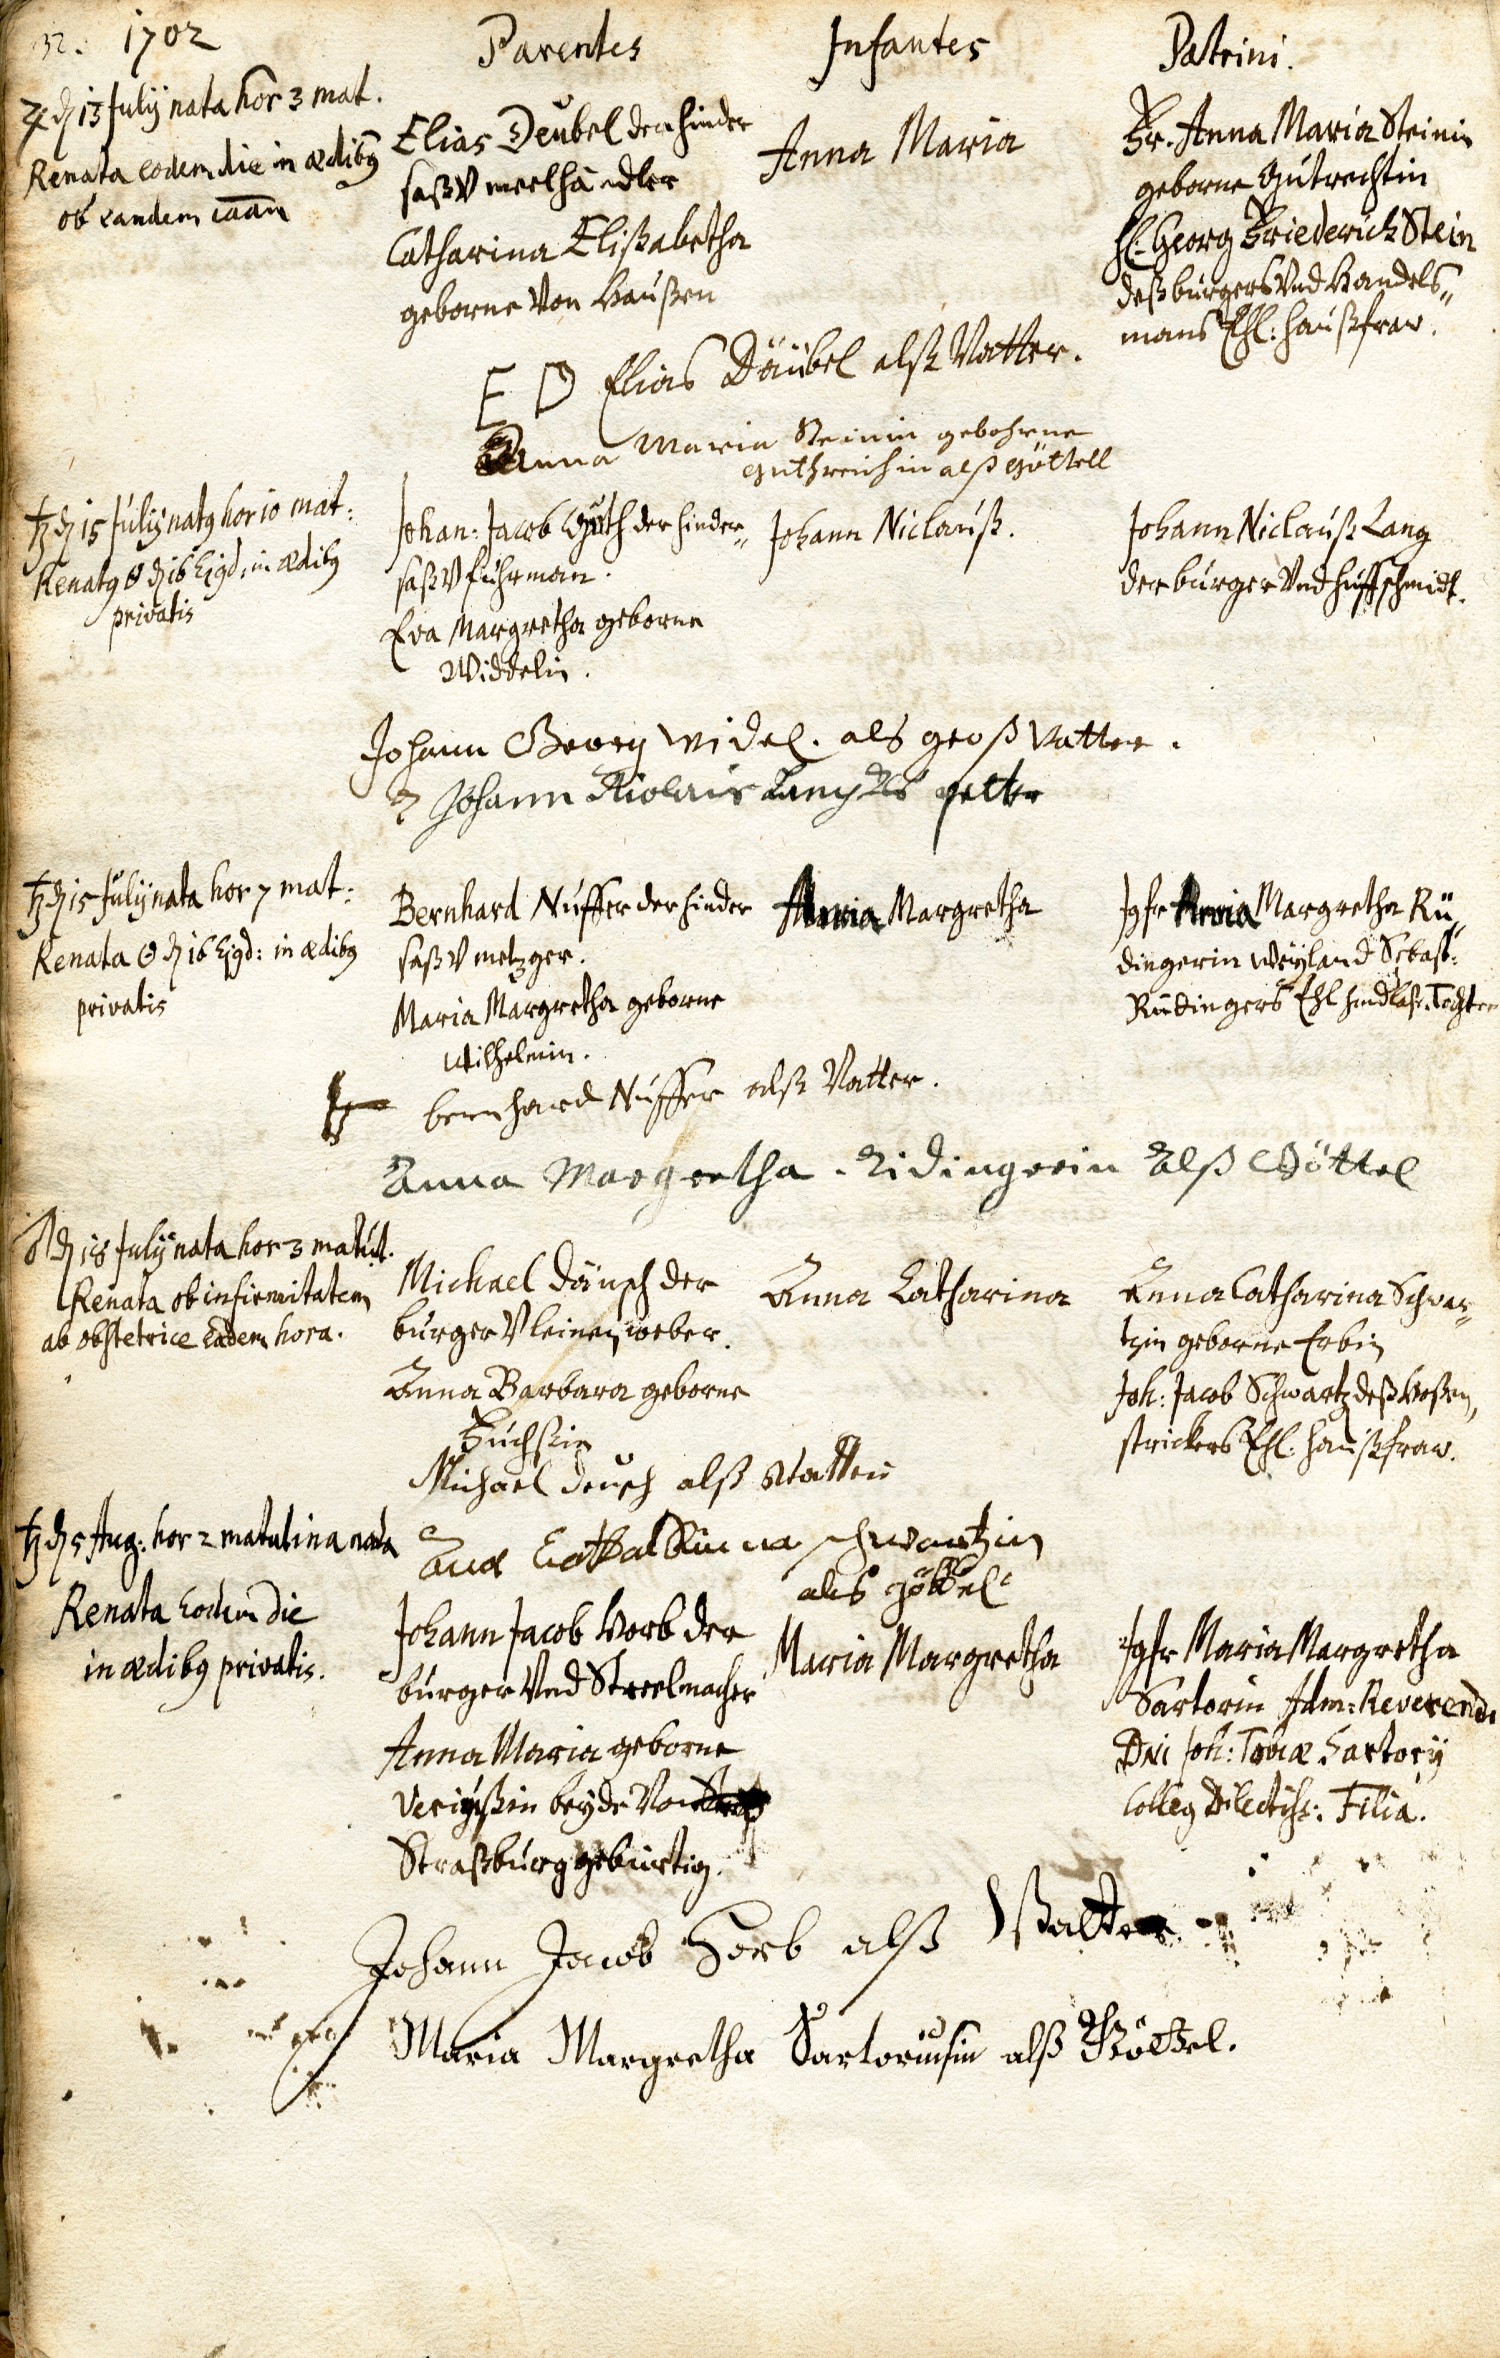 32. 1702
Parentes
Infantes
Patrini.
♃ d 13 July nata hor 3 mat.
Renata eodem die in ædibg
ob eandem caãm
Elias Deübel der hinder
saß V meelhändler
Catharina Elißabetha
geborne Von Haußen
Anna Maria
Fr. Anna Maria Steinin
geborne Gutrechtin
H. Georg Friederich Stein
deß burgers Vnd Handels„
mans Ehl: haußfraw.
E D Elias Däübel alß Vatter.
Anna Maria Steinin gebohrne
guthreichin alß göttell
♄ d 15 July natg hor 10 mat:
Renatg ☉ d 16 Ejgd: in ædibg
privatis
Johan: Jacob Guth der hinder„
saß V fuhrman.
Eva Margretha geborne
Widdelin.
Johann Niclauß.
Johann Niclauß Lang
der burger Vnd huffschmidt.
Johann Georg Widel. als groß Vatter.
Johann Nicolaus Lang als petter
♄ d 15 July nata hor 7 mat:
Renata ☉ d 16 Ejgd: in ædibg
privatis
Bernhard Nuffer der hinder
saß V metzger.
Maria Margretha geborne
Wilhelmin.
Margretha
Jgfr Margretha Rü„
dingerin weyland Sebast:
Rüdingers Ehl hindlaß. Tochter
bernhard Nuffer alß Vatter.
Anna Margretha Ridingerin Alß Göttel
♂ d 18 July nata hor 3 matut.
Renata ob infirmitatem
ab obstetrice eadem hora.
Michael Däusch der
burger V leinenweber.
Anna Barbara geborne
Fuchsin
Anna Catharina
Anna Catharina Schwar„
tzin geborne Erbin
Joh: Jacob Schwartz deß Hoßen„
strickers Ehl: haußfraw.
Michael deusch alß Vatter
schwartzin
als göttel
♄ d 5 Aug: hor 2 matutina nata
Renata Eodem die
in ædibg privatis.
Johann Jacob Horb der
burger Vnd Streelmacher
Anna Maria geborne
beyde Von
Straßburg gebürtig.
Maria Margretha
Jgfr Maria Margretha
Sartorin Adm: Reverendi
Dni Joh: Tobiæ Sartory
Colleg Dilectiss: Filia.
Johann Jacob Horb alß Vatter.
Maria Margretha Sartoriusin alß Göttel.